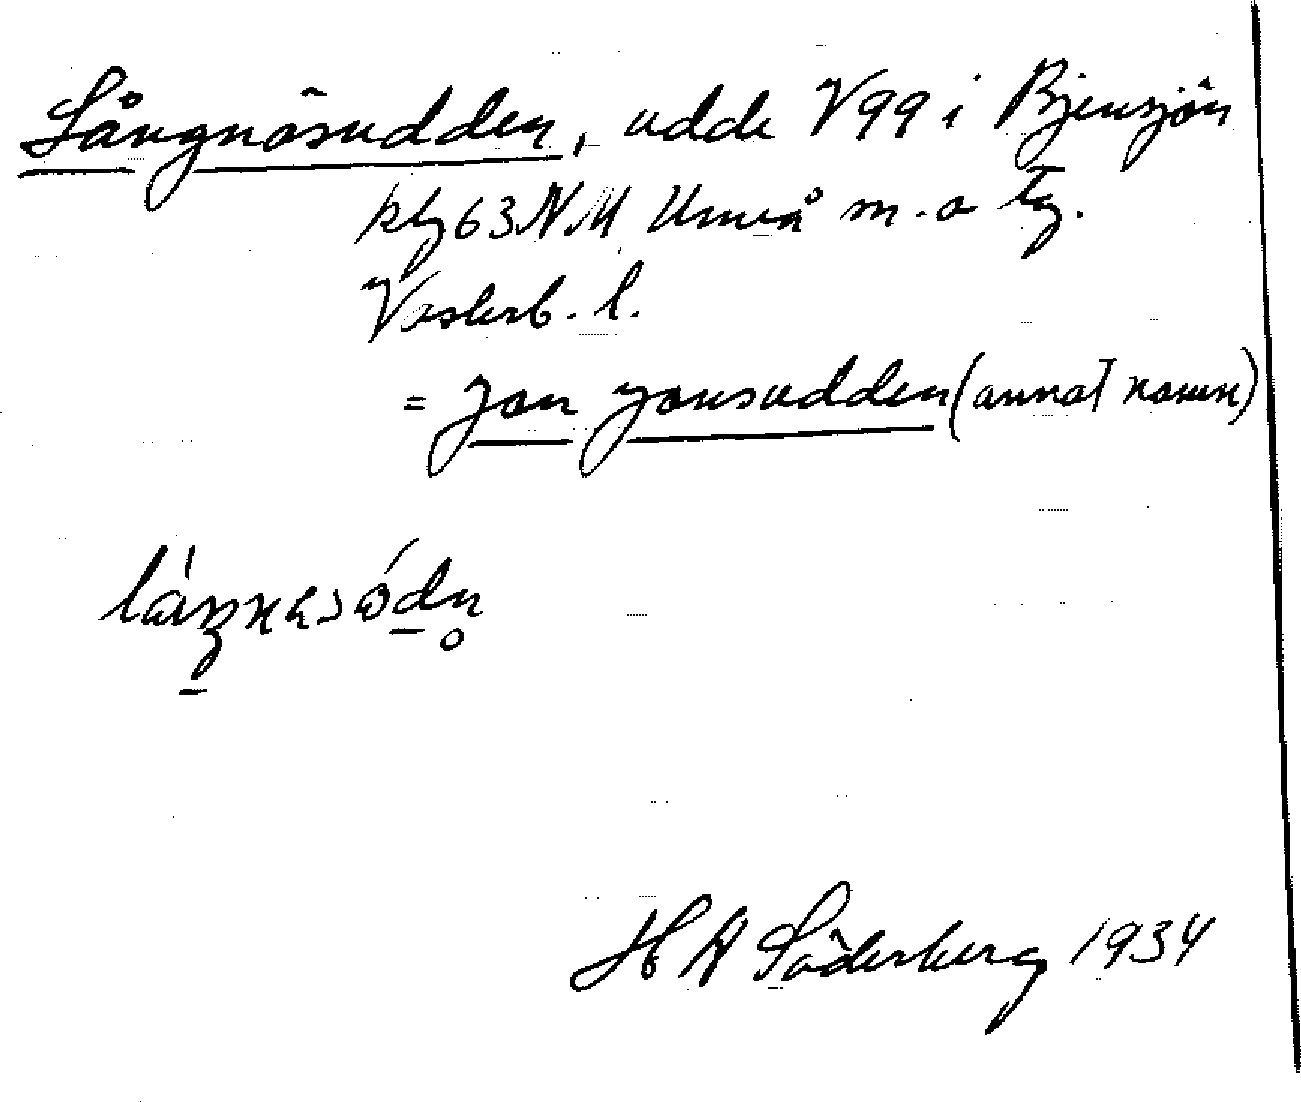 Långnäsudden, udde V99 i Bjensjön
kbl 63 NM Umeå m. o tg.
Västerb. l.
= Jon Jonsudden (annat namn)
H A Söderberg 1934